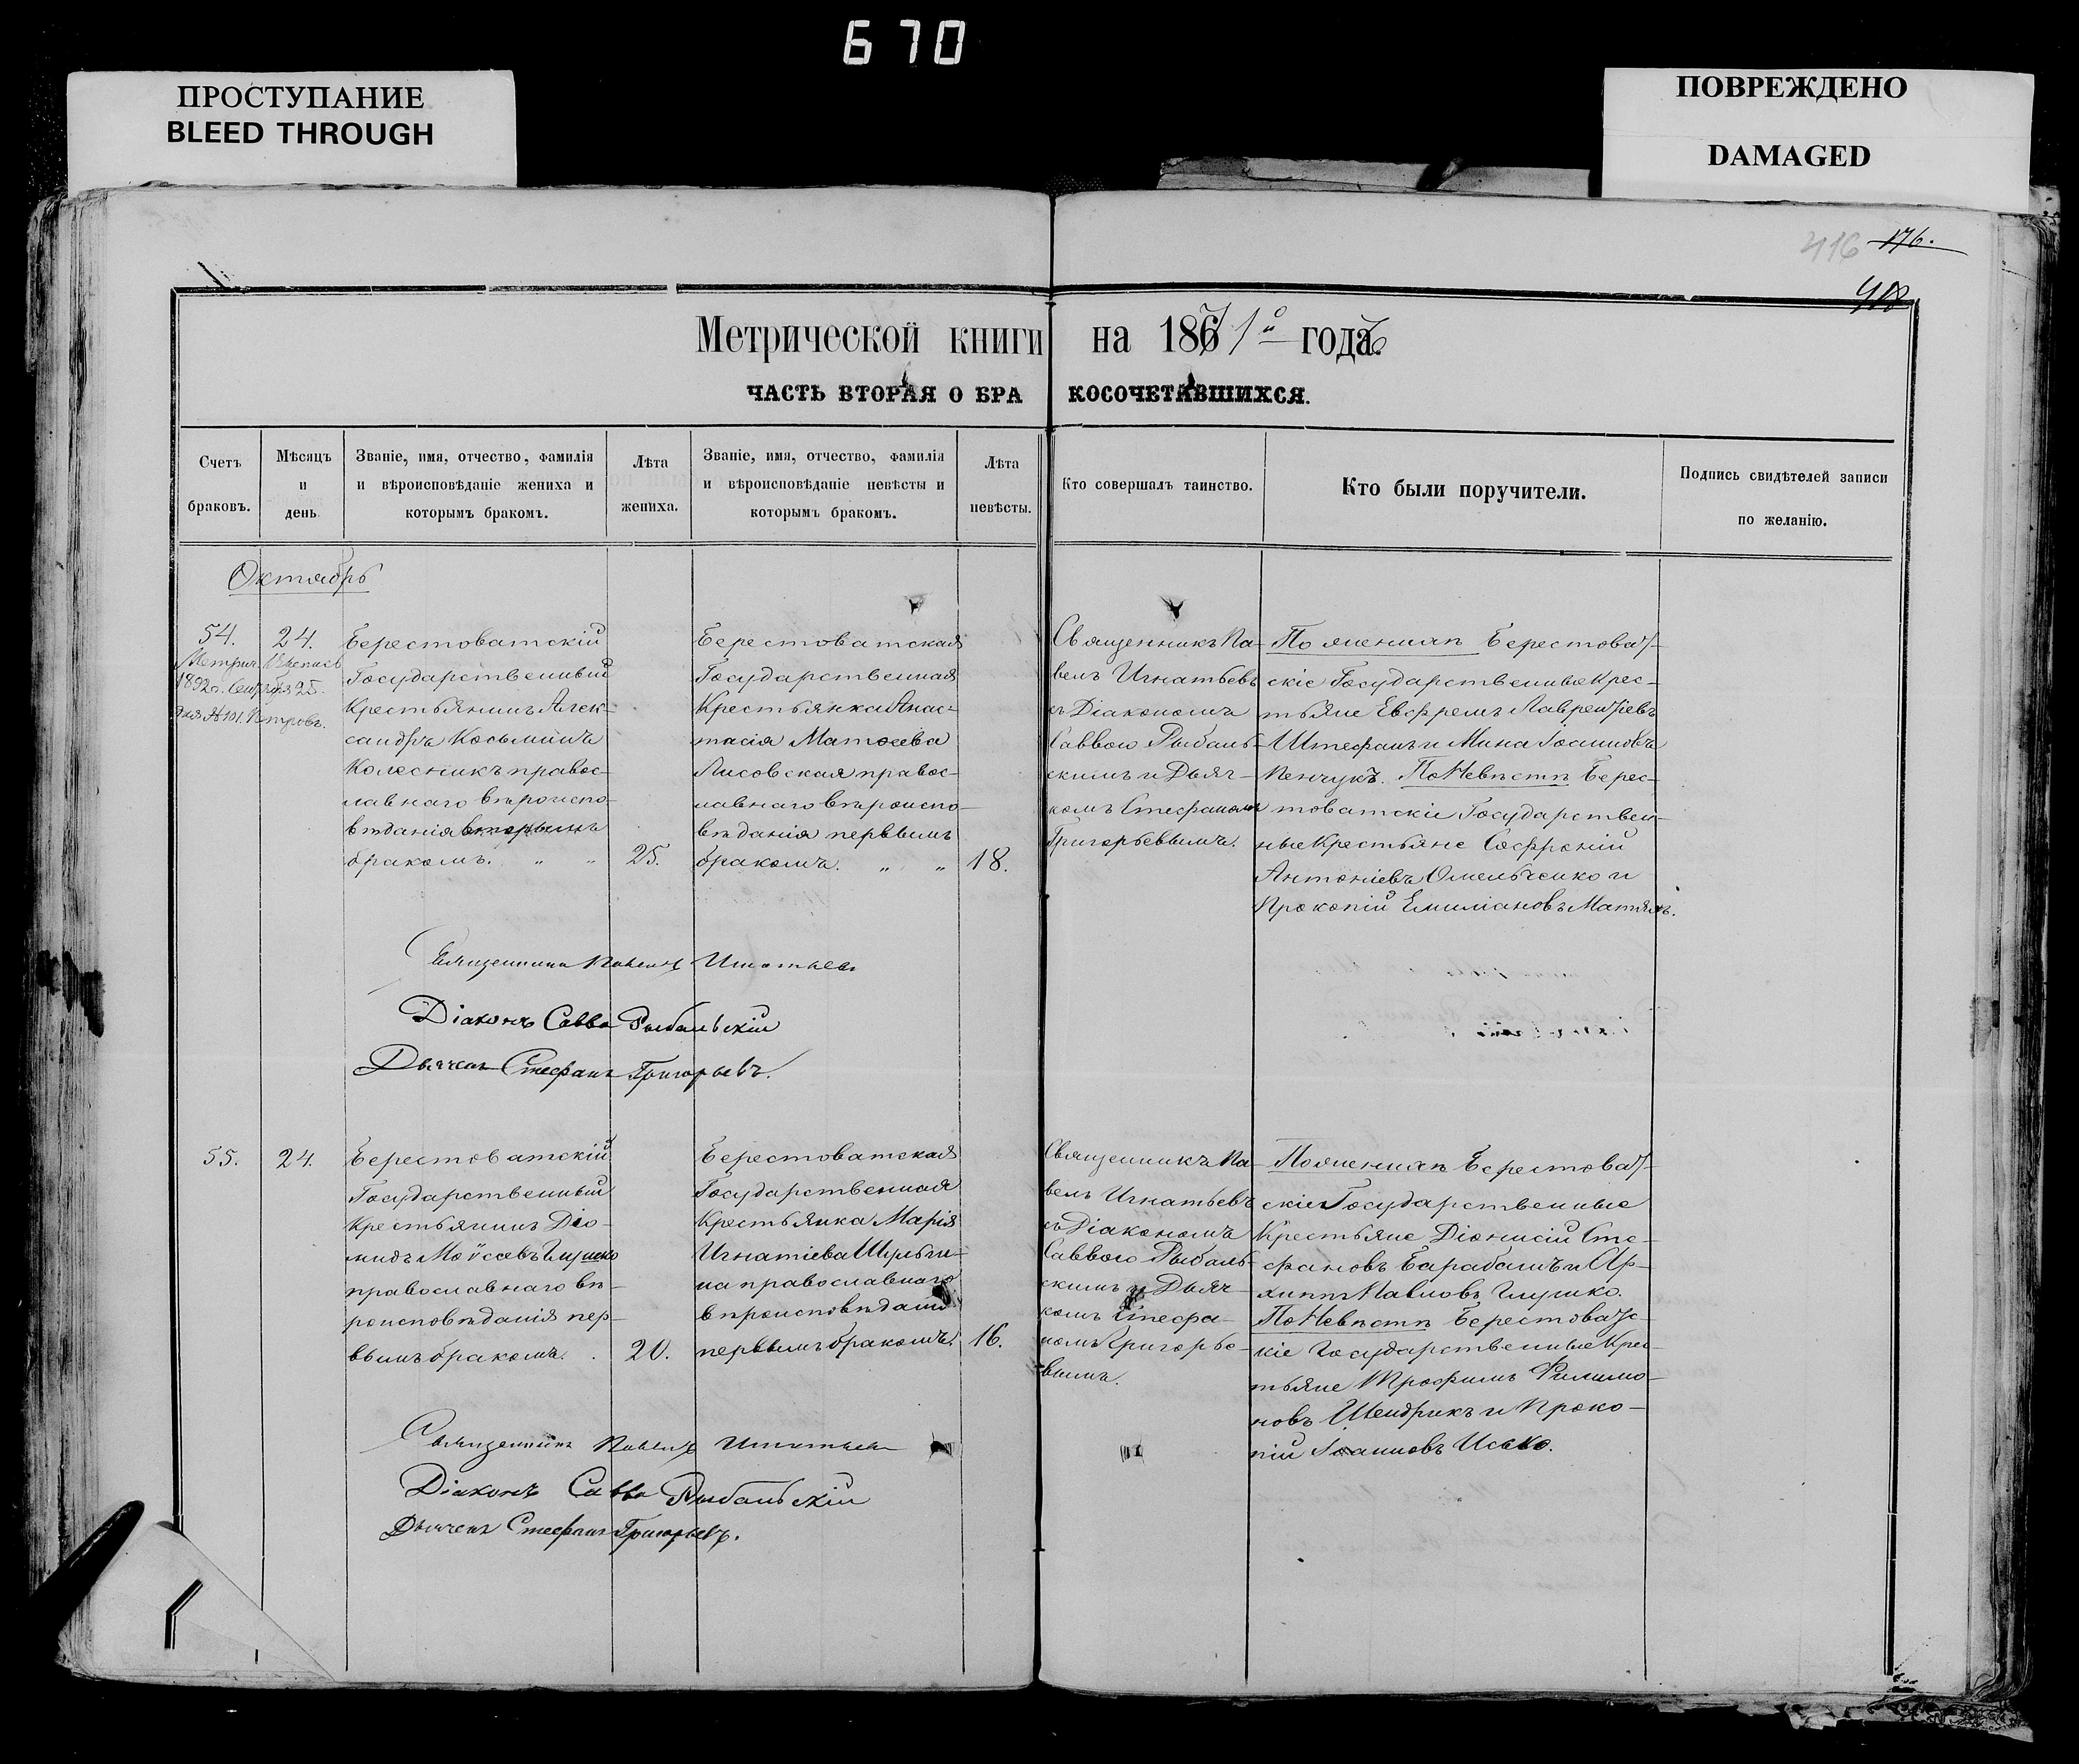 670
ПРОСТУПАНИЕ
BLEED THROUGH
ПОВРЕЖДЕНО
DAMAGED
416 176.
418
Метрической книги на 1871го года.
ЧАСТЬ ВТОРАЯ О БРАКОСОЧЕТАВШИХСЯ.
Счетъ
браковъ.
Мѣсяцъ
и
день
Званіе, имя, отчество, фамилія
и вѣроисповѣданіе жениха и
которымъ бракомъ.
Лѣта
жениха.
Званіе, имя, отчество, фамилія
и вѣроисповѣданіе невѣсты и
которымъ бракомъ.
Лѣта
невѣсты.
Кто совершалъ таинство.
Кто были поручители.
Подпись свидѣтелей записи
по желанію.
Октябрь
54.
24.
Метрич.
1892г. Сентября 25.
дня № 101.
Берестоватскій
Государственный
Крестьянинъ Алек-
сандръ Косьминъ
Колесникъ правос-
лавнаго вѣроиспо-
вѣданія вторымъ
бракомъ. „ „
25.
Берестоватская
Государственная
Крестьянка Анас-
тасія Матѳеева
Лисовская правос-
лавнаго вѣроиспо-
вѣданія первымъ
бракомъ. „ „
18.
Священникъ Па-
велъ Игнатьевъ
съ Діакономъ
Саввою Рыбаль-
скимъ и Дьяч-
комъ Стефаномъ
Григорьевымъ.
По женихѣ Берестоват-
скіе Государственные Крес-
тьяне Евфремъ Лаврентіевъ
Штефанъ и Мина Іоанновъ
Пенчукъ. По Невѣстѣ Берес-
товатскіе Государствен-
ные Крестьяне Софроній
Антоніевъ Омельченко и
Прокопій Емиліановъ Матяшъ.
Священникъ Павелъ Игнатьевъ
Діаконъ Савва Рыбальскій
Дьячекъ Стефанъ Григорьевъ.
55.
24.
Берестоватскій
Государственный
Крестьянинъ Діо-
мидъ Моѵсеевъ Глушко
православнаго вѣ-
роисповѣданія пер-
вымъ бракомъ. .
20.
Берестоватская
Государственная
Крестьянка Марія
Игнатіева
на православнаго
вѣроисповѣданія
первымъ бракомъ.
16.
Священникъ Па-
велъ Игнатьевъ
съ Діакономъ
Саввою Рыбаль-
скимъ и Дьяч-
комъ Стефа-
номъ Григорье-
вымъ.
По женихѣ Берестоват-
скіе Государственные
Крестьяне Діонисій Сте-
фановъ Барабашъ и Ар-
хиппъ Павловъ Глушко.
По Невѣстѣ Берестоватс-
кіе Государственные Крес-
тьяне Трофимъ Филимо-
новъ Шендрикъ и Проко-
пій Іоанновъ Исько.
Священникъ Павелъ Игнатьевъ
Діаконъ Савва Рыбальскій
Дьячекъ Стефанъ Григорьевъ.